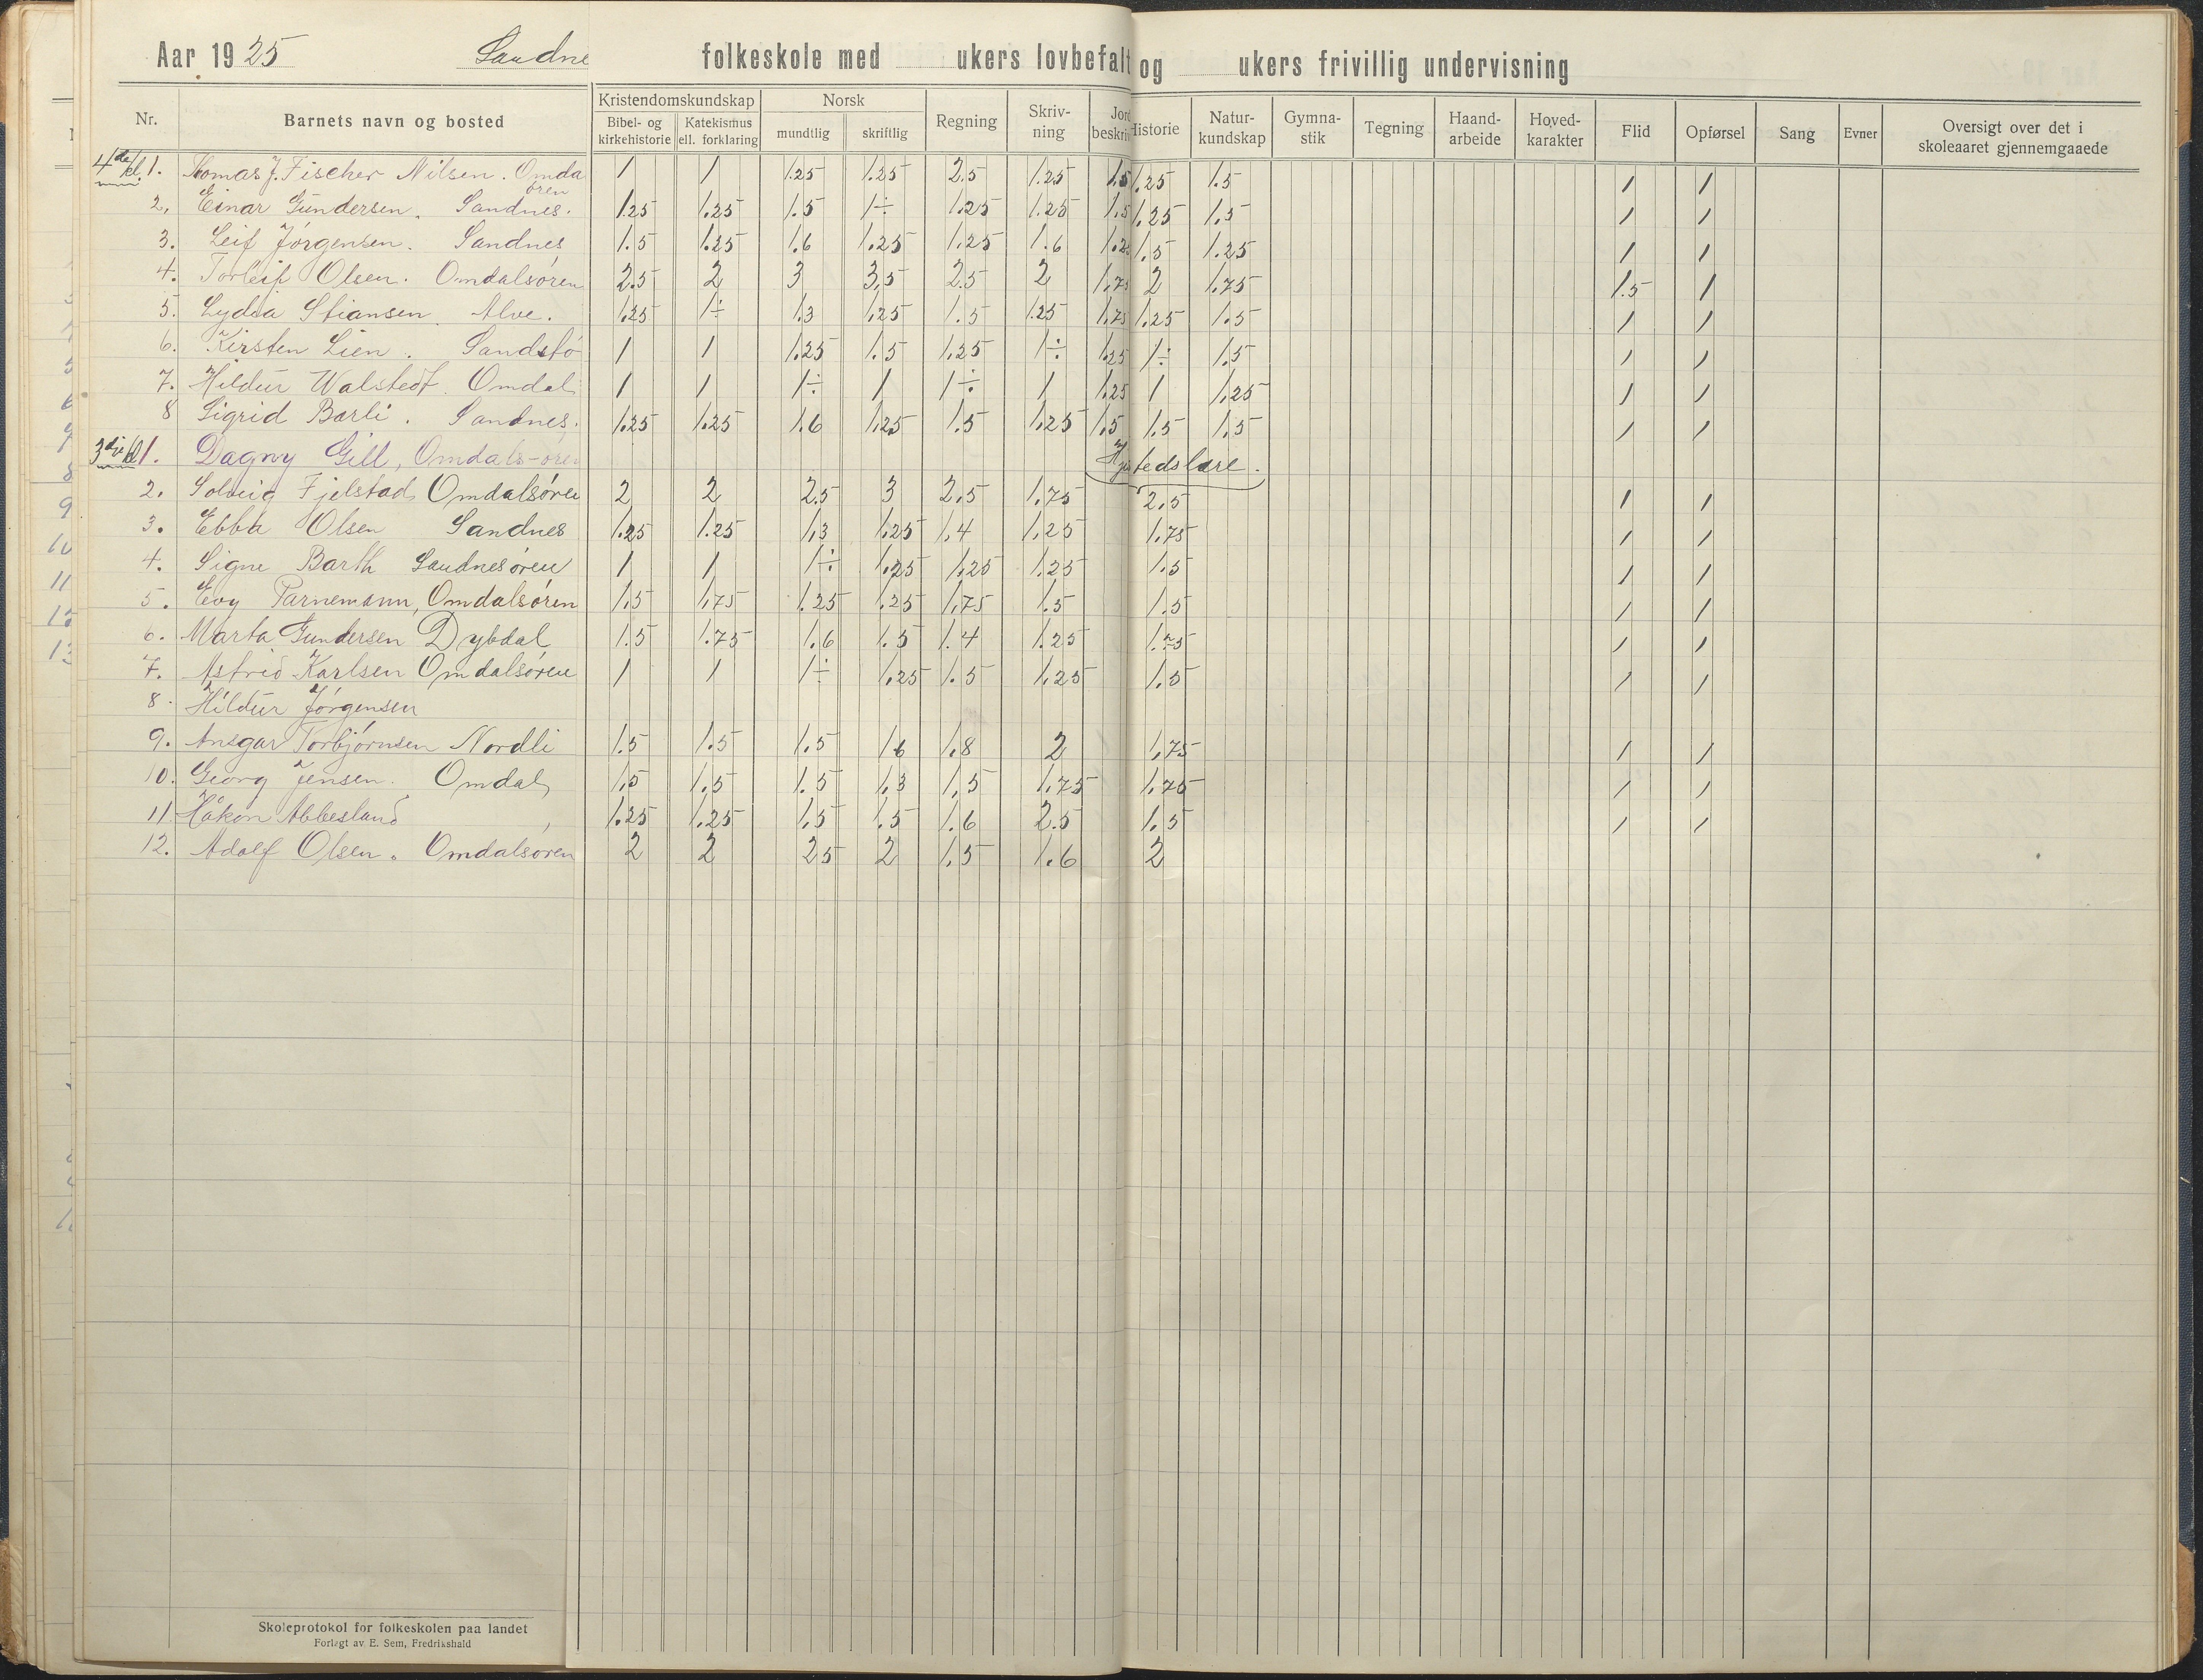 Aar 1925 Sandne folkeskole med ukers lovbefalt og ukers frivillig undervisning
Nr. Barnets navn og bosted Kristendomskundskap Bibel- og kirkehistorie Katekismus ell. forklaring Norsk mundtlig skriftlig Regning Skriv-ning Jord beskri Historie Natur-kundskap Gymna-stik Tegning Haand-arbeide Hoved-karakter Flid Opførsel Sang Evner Oversigt over det i skoleaaret gjennemgaaede
4de kl. 1. Thomas J. Fischer Nilsen. Omda 1 1 1.25 1.25 2,5 1.25 1.5 1.25 1.5 1 1
ören
2. Einar Gundersen. Sandnes. 1.25 1.25 1.5 1÷ 1.25 1.25 1.5 1.25 1.5 1 1
3. Leif Jörgensen. Sandnes 1.5 1.25 1.6 1.25 1.25 1.6 1.25 1.5 1.25 1 1
4. Torleif Olsen. Omdalsören 2.5 2 3 3,5 2.5 2 1,75 2 1.75 1.5 1
5. Lydia Stiansen. Alve. 1.25 1÷ 1.3 1.25 1.5 1.25 1.75 1.25 1.5 1 1
6. Kirsten Lien. Sandstö 1 1 1.25 1.5 1.25 1÷ 1.25 1÷ 1.5 1 1
7. Hildur Walstedt. Omdal 1 1 1÷ 1 1÷ 1 1.25 1 1.25 1 1
8 Sigrid Barli. Sandnes. 1.25 1.25 1.6 1.25 1.5 1.25 1.5 1.5 1.5 1 1
3die kl 1. Dagny Gill, Omdals-ören Hjstedslære.
2. Solveig Fjelstad Omdalsören 2 2 2.5 3 2,5 1.75 2,5 1 1
3. Ebba Olsen Sandnes 1.25 1.25 1,3 1.25 1,4 1,25 1.75 1 1
4. Signe Barth Sandnesören 1 1 1÷ 1.25 1.25 1.25 1.5 1 1
5. Evy Parnemann, Omdalsören 1,5 1,75 1.25 1.25 1,75 1.5 1.5 1 1
6. Marta Gundersen Dybdal 1.5 1.75 1.6 1.5 1.4 1.25 1.75 1 1
7. Astrid Karlsen Omdalsören 1 1 1÷ 1.25 1.5 1.25 1.5 1 1
8. Hildur Jörgensen
9. Ansgar Torbjörnsen Nordli 1.5 1.5 1.5 1.6 1.8 2 1,75 1 1
10. Georg Jensen. Omdal, 1.5 1.5 1.5 1,3 1,5 1,75 1.75 1 1
11. Håkon Abbesland , 1.25 1.25 1.5 1.5 1.6 2.5 1.5 1 1
12. Adolf Olsen. Omdalsören 2 2 2.5 2 1.5 1.6 2
Skoleprotokol for folkeskolen paa landet
Forlagt av E. Sem, Fredrikshald